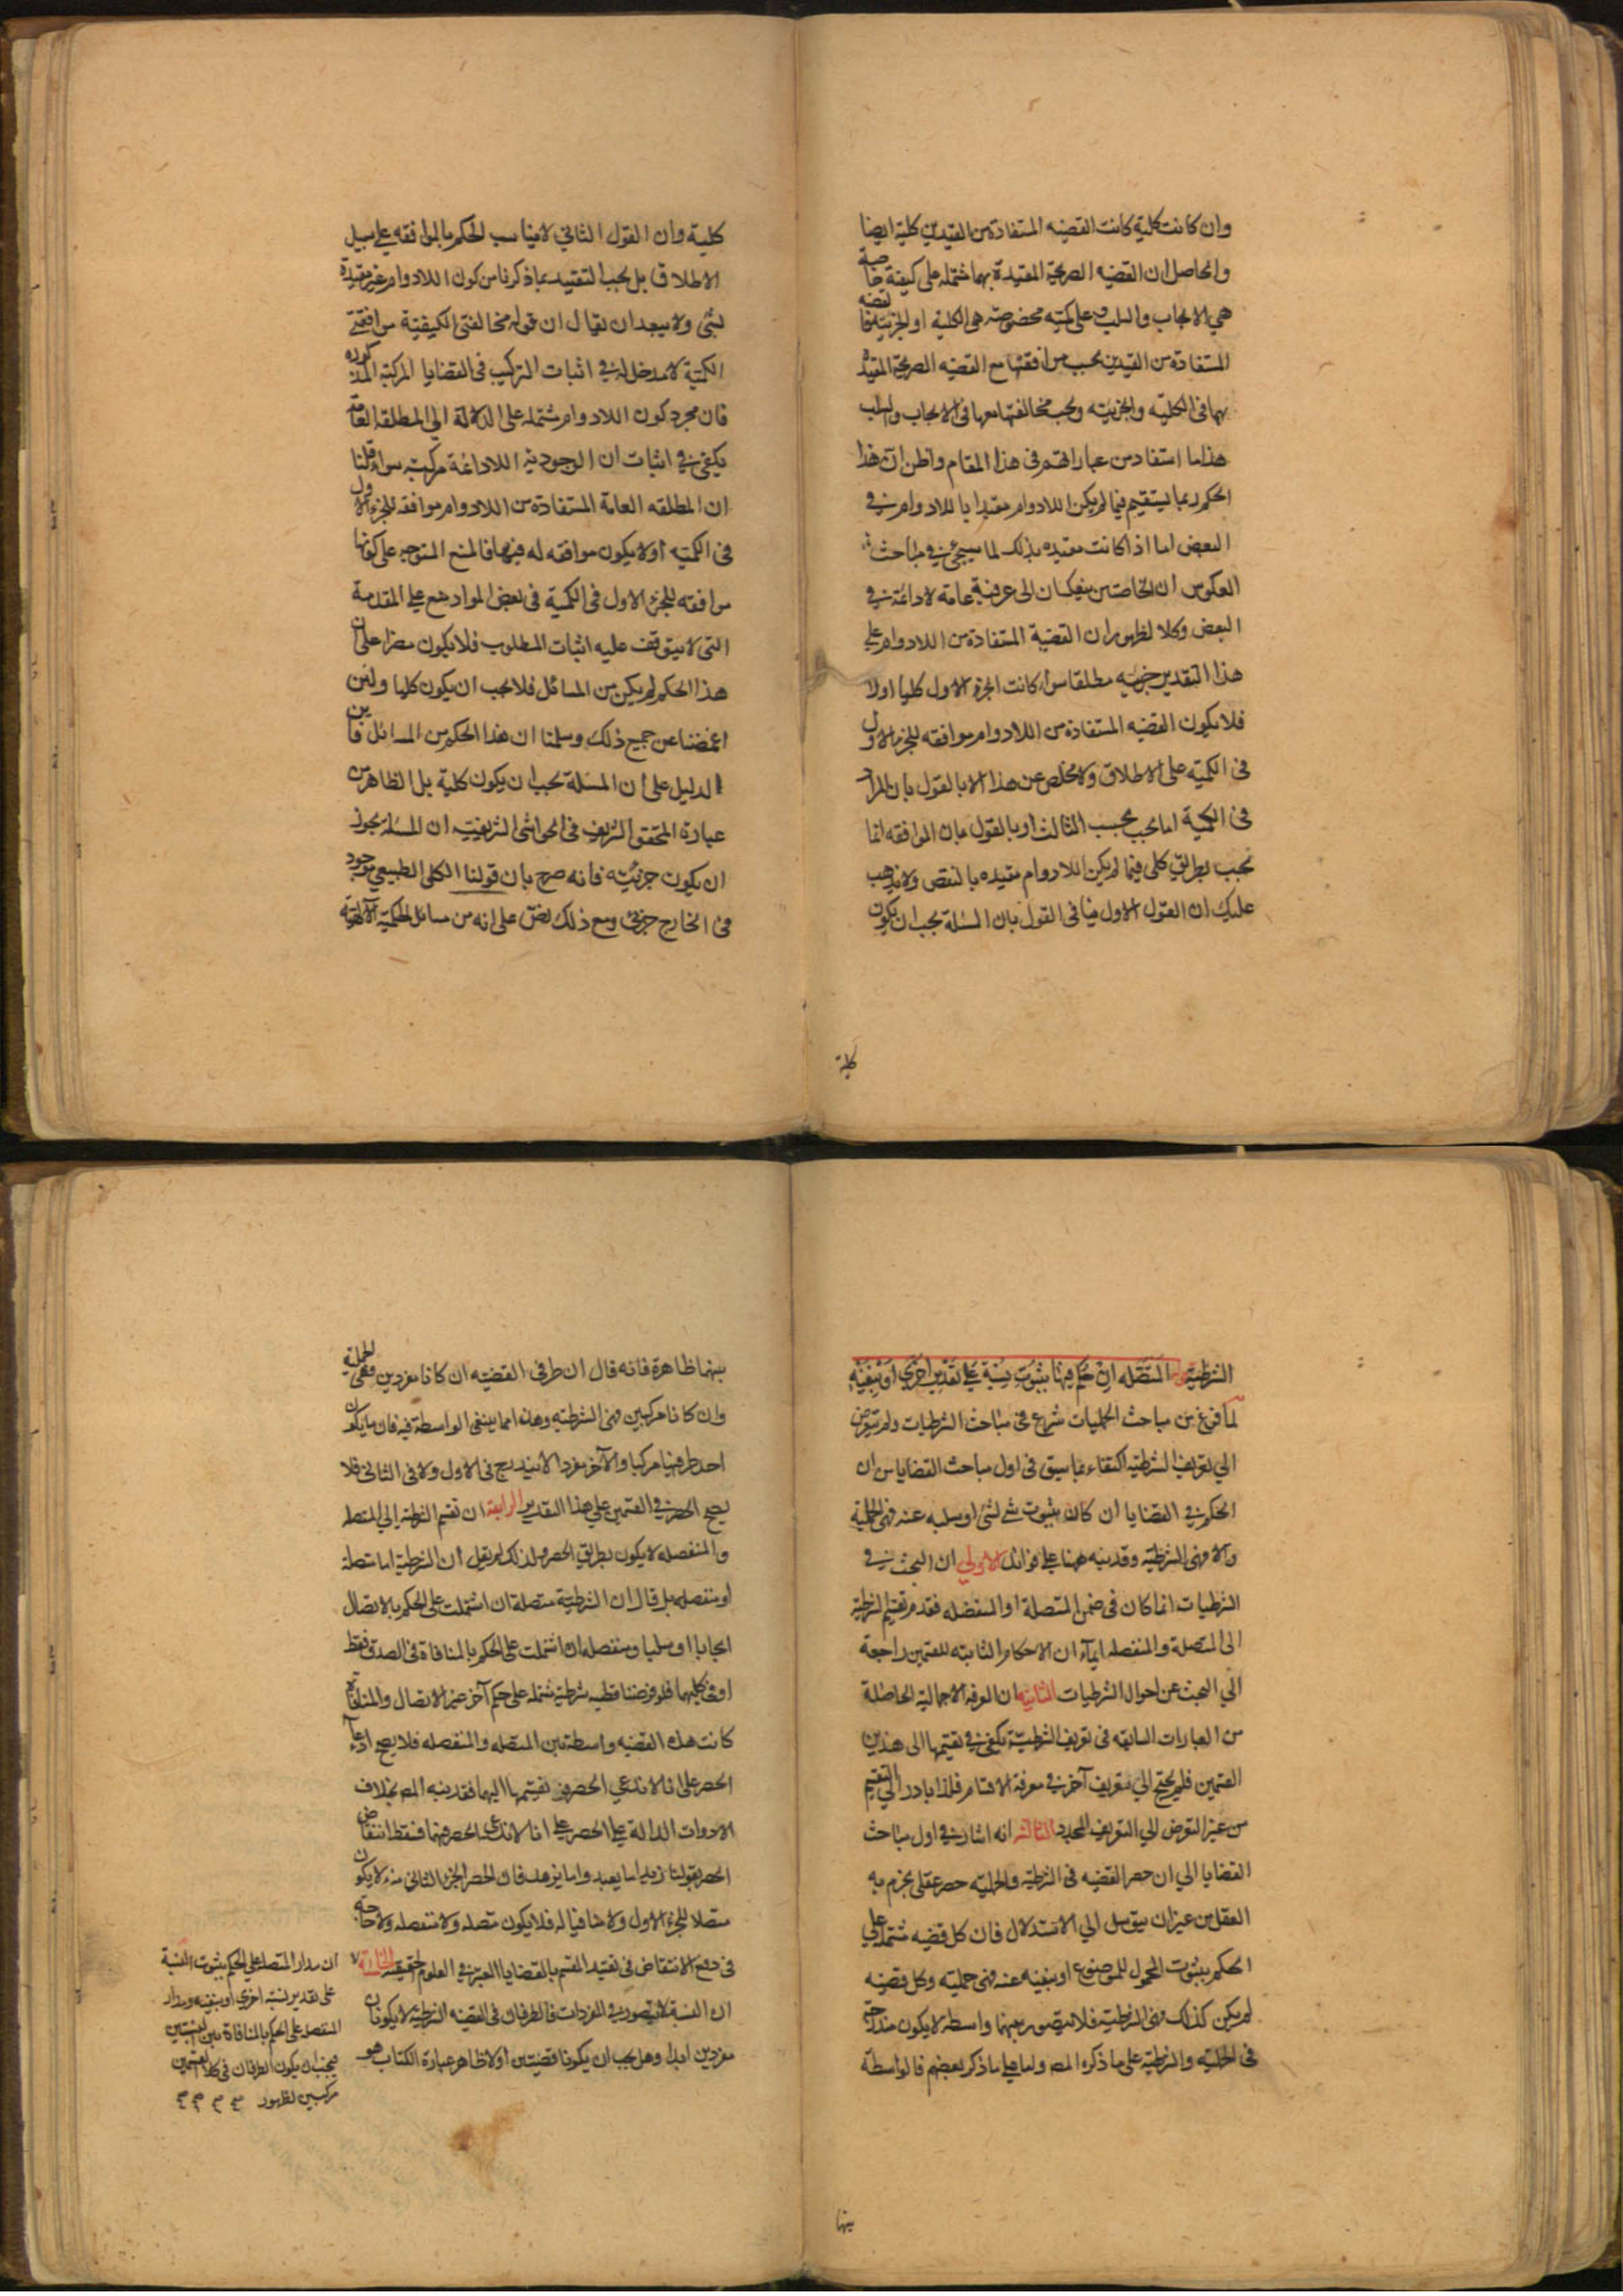 وان كانت كلية كانت القضيه المستفادة من القيدين كلية ايضا
والحاصل ان القضيه الصريحة المقيدة بهما مشتملة على كيفية خاصة
هي الايجاب والسلب وعلى كمية مخصوصة هى الكلية او الجزئية فالقضيه
المستفادة من القيدين يجب موافقتها مع القضيه الصريحة المقيدة
بهما فى الكليه والجزئيه ويجب مخالفتها معها فى الايجاب والسلب
هذا ما استفاد من عباراتهم فى هذا المقام واظن ان هذا
الحكم ربما يستقيم فيما لم يكن اللادوام مقيدا باللادوام في
البعض اما اذا كانت مقيده بذلك لما سيجئ في مباحث
العكوس ان الخاصتين ينعكسان الى عرفية عامة لادائمة في
البعض وكلا لظهور ان القضية المستفادة من اللادوام على
هذا التقدير جزئيه مطلقا سواء كانت الجزء الاول كليا اولا
فلا يكون القضيه المستفادة من اللادوام موافقه للجزء الاول
فى الكميه على الاطلاق ولا مخلص عن هذا الا بالقول بان المراد
فى الكمية اما يجب بحسب الثالث او بالقول بان الموافقه انما
يجب بطريق كلى فيما لم يكن اللادوام مقيده بالنقض ولا يذهب
عليك ان القول الاول ينافى القول بان المسئلة يجب ان يكون
كلية
كلية وان القول الثانى لا يناسب الحكم بالموافقه على سبيل
الاطلاق بل يجب التقييد بما ذكرنا من كون اللادوام غير مقيدة
بشئ ولا يبعد ان يقال ان قوله مخالفتى الكيفية موافقتى
الكمية لا مدخل له في اثبات التركيب فى القضايا المركبة المذكوره
فان مجرد كون اللادوام مشتمله على الدلالة الى المطلقه العامة
يكفى في اثبات ان الوجوديه اللادائمة مركبه سواء قلنا
ان المطلقه العامة المستفادة من اللادوام موافقه للجزء الاول
فى الكميه او لا يكون موافقه له فيها فالمنع المتوجه على كونها
موافقه للجزء الاول فى الكمية فى بعض المواد منع على المقدمة
التى لا يتوقف عليه اثبات المطلوب فلا يكون مضرا على ان
هذا الحكم لم يكن من المسائل فلا يجب ان يكون كليا ولئن
اغمضنا عن جميع ذلك وسلمنا ان هذا الحكم من المسائل فاين
الدليل على ان المسئلة يجب ان يكون كلية بل الظاهر من
عبارة المحقق الشريف فى الحواشى الشريفية ان المسئله يجوز
ان يكون جزئيه فانه صرح بان قولنا الكلى الطبيعي موجود
فى الخارج جزئى ومع ذلك نص على انه من مسائل الحكمة الالهية
الشرطية المتصله ان حكم فيها بثبوت نسبة على تقدير اخرى او بنفيه
لما فرغ من مباحث الحمليات شرع فى مباحث الشرطيات ولم يتعرض
الى تعريف الشرطيه اكتفاء بما سبق فى اول مباحث القضايا من ان
الحكم في القضايا ان كان بثبوت شئ لشئ او سلبه عنه فهى الحملية
والا فهى الشرطيه وقد نبه ههنا على فوائد الاولى ان البحث في
الشرطيات انما كان فى ضمن المتصلة او المنفصله فقدم تقسيم الشرطية
الى المتصلة والمنفصله ايماء ان الاحكام الثابته للقسمين راجعة
الى البحث عن احوال الشرطيات الثانيه ان المعرفة الاجمالية الحاصلة
من العبارات السابقه فى تعريف الشرطية يكفى في تقسيمها الى هذين
القسمين فلم يحتج الى تعريف آخر في معرفة الاقسام فلذا بادر الى التقسيم
من غير التعرض الى التعريف المجدد الثالثه انه اشار في اول مباحث
القضايا الى ان حصر القضيه فى الشرطيه والحمليه حصر عقلى يجزم به
العقل من غير ان يتوسل الى الاستدلال فان كل قضيه مشتمله على
الحكم بثبوت المحمول للموضوع او بنفيه عنه فهى حمليه وكل قضيه
لم يكن كذلك فهى الشرطيه فلا يتصور بينهما واسطه لا يكون مندرجة
فى الحمليه والشرطيه على ما ذكره المص واما على ما ذكر بعضهم فالواسطه
بينهما
بينهما ظاهرة فانه قال ان طرفى القضيه ان كانا مفردين فهى الحملية
وان كانا مركبين فهى الشرطيه وهذا انما ينفى الواسطة فيه فان ما يكون
احد طرفيها مركبا والآخر مفردا لا يندرج فى الاول ولا فى الثانى فلا
يصح الحصر في القسمين على هذا التقدير الرابعة ان تقسيم الشرطية الى المتصله
والمنفصله لا يكون بطريق الحصر ولذلك لم يقل ان الشرطية اما متصلة
او منفصله بل قال ان الشرطية متصلة ان اشتملت على الحكم بالاتصال
ايجابا او سلبا ومنفصله ان اشتملت على الحكم بالمنافاة فى الصدق فقط
او فى كليهما فلو فرضنا قضيه شرطية مشتمله على حكم آخر غير الاتصال والمنافاة
كانت هذه القضيه واسطة بين المتصله والمنفصله فلا يصح ادعاء
الحصر على انا لا ندعى الحصر فى تقسيمها اليهما فقد نبه المص بخلاف
الادوات الدالة على الحصر على انا لا ندعى الحصر فيهما فسقط انتقاض
الحصر بقولنا زيد اما يعبد واما يزهد فان الحصر الجزء الثانى منه لا يكون
متصلا للجزء الاول ولا منافيا له فلا يكون متصله ولا منفصله ولا حاجة
فى دفع الانتقاض فى تقييد المقسم بالقضايا المعتبرة في العلوم الحقيقيه
ان النسبة لا يتصور في المفردات فالطرفان فى القضيه الشرطية لا يكونان
مفردين ابدا وهل يجب ان يكونا قضيتين اولا ظاهر عبارة الكتاب هو
ان مدار المتصله على الحكم بثبوت النسبة
على تقدير نسبه اخرى او بنفيه ومدار
المنفصله على الحكم بالمنافاة بين النسبتين
فيجب ان يكون الطرفان فى كلا القسمين
مركبين لظهور